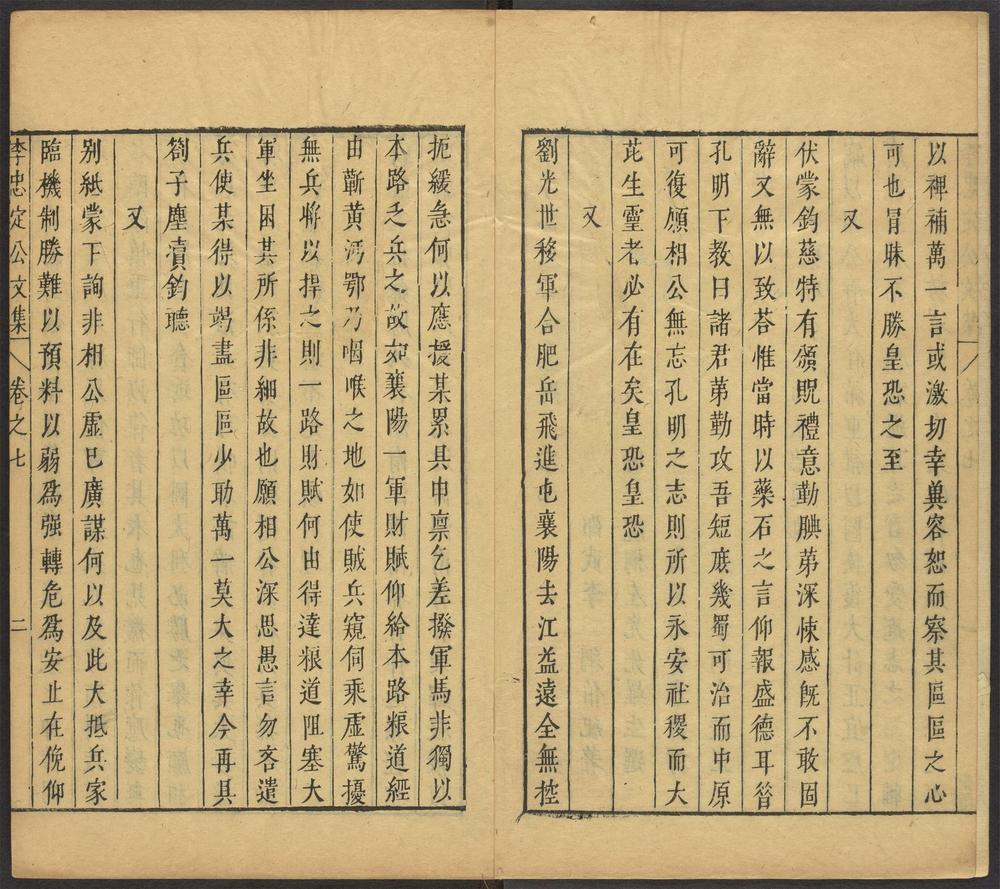 以裨補萬一言或激切幸冀容恕而察其區區之心
可也冒昧不勝皇恐之至
又
伏蒙鈞慈特有頒貺禮意勤腆第深悚感旣不敢固
辭又無以致荅惟當時以藥石之言仰報盛德耳昝
孔明下教曰諸君第勤攻吾短庻幾蜀可治而中原
可復願相公無忘孔明之志則所以永安社稷而大
芘生靈者必有在矣皇恐皇恐
又
劉光世移軍合肥岳飛進屯襄陽去江益遠全無控
扼緩急何以應援某累具申禀乞差撥軍馬非獨以
本路乏兵之故如襄陽一軍財賦仰給本路糧道經
由蘄黃沔鄂乃咽喉之地如使賊兵窺伺乘虛驚擾
無兵將以捍之則一路財賦何由得達糧道阻塞大
軍坐困其所係非細故也願相公深思愚言勿吝遣
兵使某得以竭盡區區少助萬一莫大之幸今再具
劄子塵瀆鈞聽
又
别紙蒙下詢非相公虛已廣謀何以及此大抵兵家
臨機制勝難以預料以弱爲强轉危爲安止在俛仰
李忠定公文集 卷之七 二